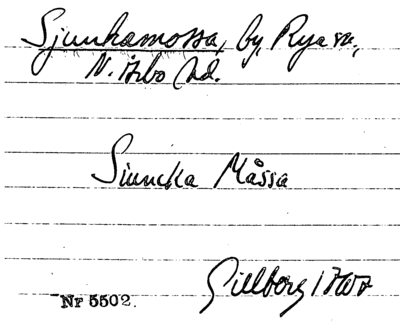 Sjunkamossa, by, Rya sn,
N. Åsbo hd.
Siuncka Måssa
Gillberg 1767
Nr 5502.